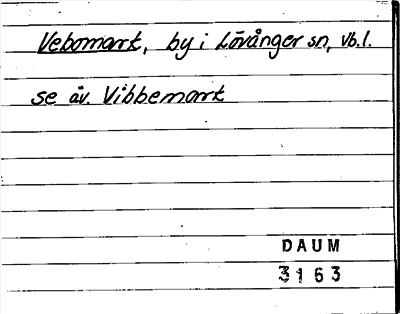 Vebomark, by i Lövånger sn, Vb.l.
se äv. Vibbemark
DAUM
3163